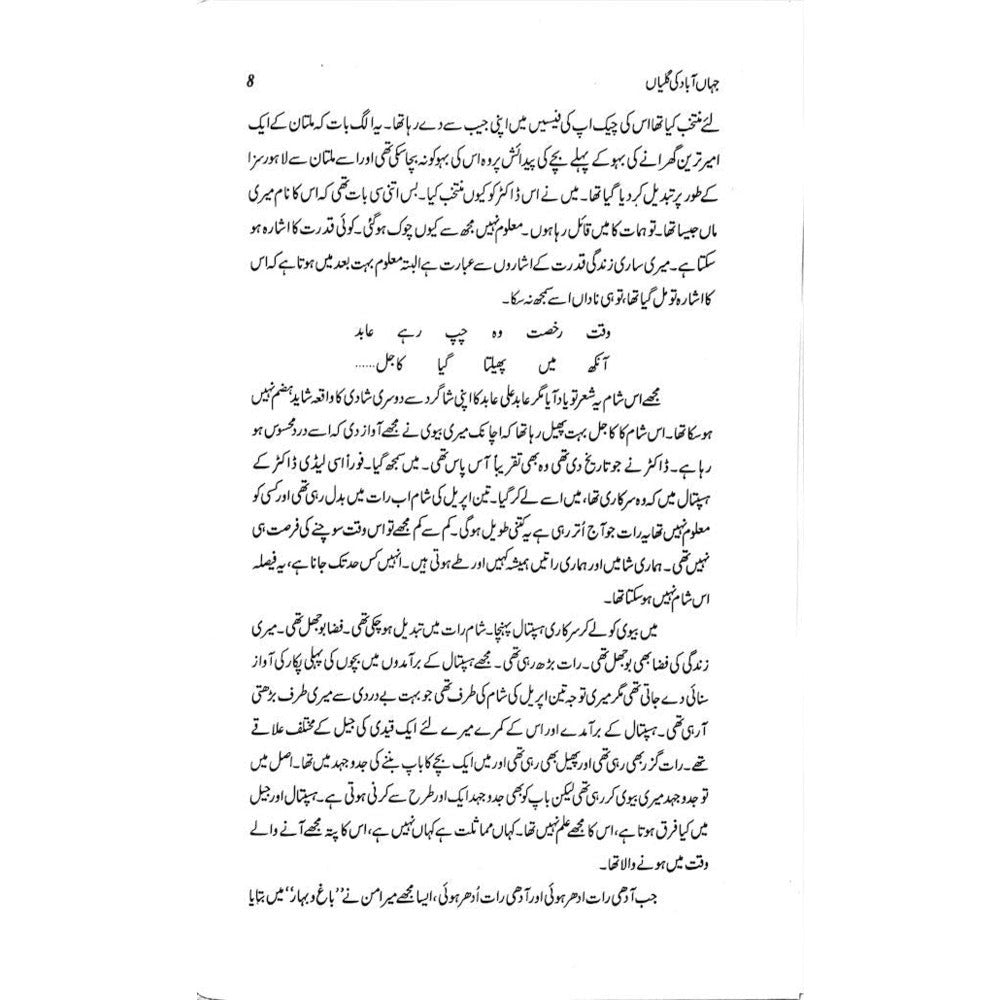 جہاں آباد کی گلیاں
8
لئے منتخب کیا تھا اس کی چیک اپ کی فیسیں میں اپنی جیب سے دے رہا تھا۔ یہ الگ بات کہ ملتان کے ایک
امیر ترین گھرانے کی بہو کے پہلے بچے کی پیدائش پر وہ اس کی بہو کو نہ بچا سکی تھی اور اسے ملتان سے لاہور سزا
کے طور پر تبدیل کر دیا گیا تھا۔ میں نے اس ڈاکٹر کو کیوں منتخب کیا۔ بس اتنی سی بات تھی کہ اس کا نام میری
ماں جیسا تھا۔ توہمات کا میں قائل رہا ہوں۔ معلوم نہیں مجھ سے کیوں چوک ہو گئی۔ کوئی قدرت کا اشارہ ہو
سکتا ہے۔ میری ساری زندگی قدرت کے اشاروں سے عبارت ہے البتہ معلوم بہت بعد میں ہوتا ہے کہ اس
کا اشارہ تو مل گیا تھا، تو ہی ناداں اسے سمجھ نہ سکا۔
وقت رخصت وہ چپ رہے عابد
آنکھ میں پھیلتا گیا کاجل......
مجھے اس شام یہ شعر تو یاد آیا مگر عابد علی عابد کا اپنی شاگرد سے دوسری شادی کا واقعہ شاید ہضم نہیں
ہو سکا تھا۔ اس شام کا کاجل بہت پھیل رہا تھا کہ اچانک میری بیوی نے مجھے آواز دی کہ اسے درد محسوس ہو
رہا ہے۔ ڈاکٹر نے جو تاریخ دی تھی وہ بھی تقریباً آس پاس تھی۔ میں سمجھ گیا۔ فوراً اسی لیڈی ڈاکٹر کے
ہسپتال میں کہ وہ سرکاری تھا، میں اسے لے کر گیا۔ تین اپریل کی شام اب رات میں بدل رہی تھی اور کسی کو
معلوم نہیں تھا یہ رات جو آج اُتر رہی ہے یہ کتنی طویل ہو گی۔ کم سے کم مجھے تو اس وقت سوچنے کی فرصت ہی
نہیں تھی۔ ہماری شامیں اور ہماری راتیں ہمیشہ کہیں اور طے ہوتی ہیں۔ انہیں کس حد تک جانا ہے، یہ فیصلہ
اس شام نہیں ہو سکتا تھا۔
میں بیوی کو لے کر سرکاری ہسپتال پہنچا۔ شام رات میں تبدیل ہو چکی تھی۔ فضا بوجھل تھی۔ میری
زندگی کی فضا بھی بوجھل تھی۔ رات بڑھ رہی تھی۔ مجھے ہسپتال کے برآمدوں میں بچوں کی پہلی پکار کی آواز
سنائی دے جاتی تھی مگر میری توجہ تین اپریل کی شام کی طرف تھی جو بہت بے دردی سے میری طرف بڑھتی
آ رہی تھی۔ ہسپتال کے برآمدے اور اس کے کمرے میرے لئے ایک قیدی کی جیل کے مختلف علاقے
تھے۔ رات گزر بھی رہی تھی اور پھیل بھی رہی تھی اور میں ایک بچے کا باپ بننے کی جدوجہد میں تھا۔ اصل میں
تو جدوجہد میری بیوی کر رہی تھی لیکن باپ کو بھی جدوجہد ایک اور طرح سے کرنی ہوتی ہے۔ ہسپتال اور جیل
میں کیا فرق ہوتا ہے، اس کا مجھے علم نہیں تھا۔ کہاں مماثلت ہے کہاں نہیں ہے، اس کا پتہ مجھے آنے والے
وقت میں ہونے والا تھا۔
جب آدھی رات ادھر ہوئی اور آدھی رات اُدھر ہوئی، ایسا مجھے میر امن نے ’’باغ و بہار‘‘ میں بتایا